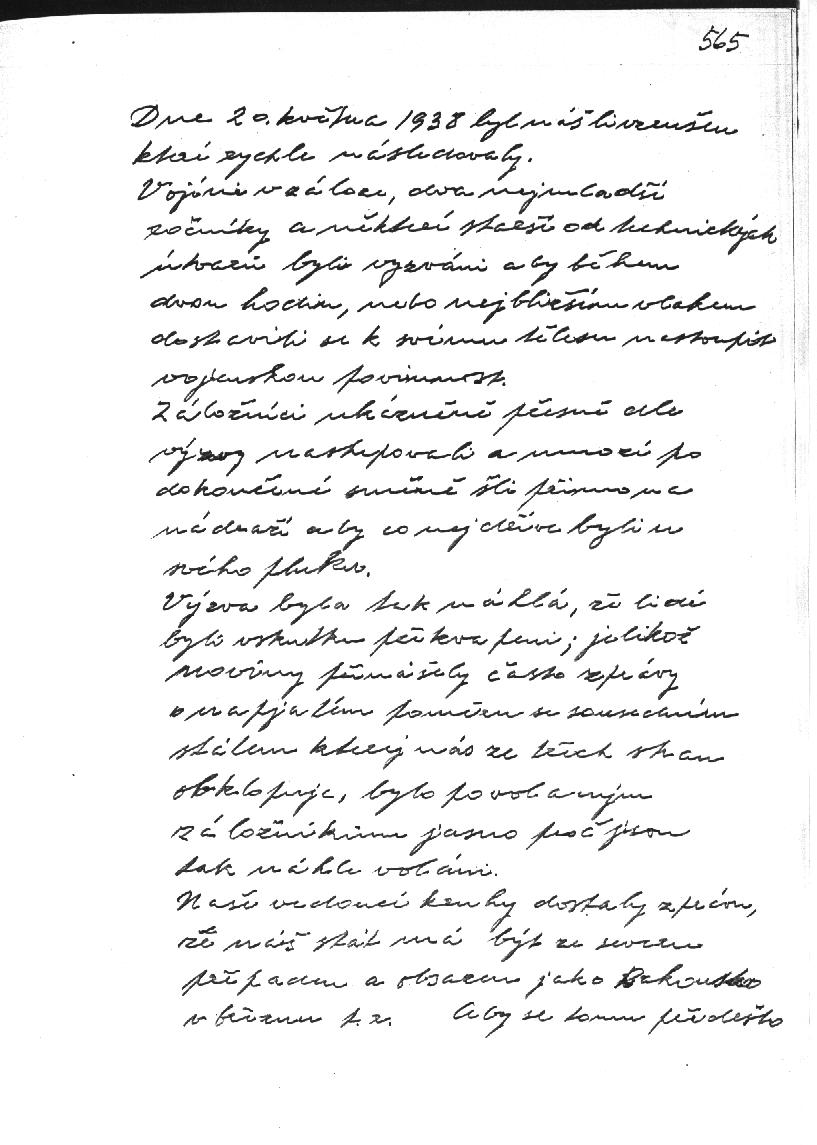 565
Dne 20. května 1938 byl náš lid vzrušen
kteří rychle následovaly.
Vojíni v záloze, dva nejmladší
ročníky a někteří starší od technických
útvarů byli vyzváni aby během
dvou hodin, nebo nejbližším vlakem
dostavili se k svému tělesu nastoupit
vojenskou povinnost.
Záložníci ukázněně přesně dle
výzvy nastupovali a mnozí po
dokončené směně šli přímo na
nádraží aby co nejdříve byli u
svého pluku.
Výzva byla tak náhlá, že lidé
byli vskutku překvapeni; jelikož
noviny přinášely často zprávy
o napjatém poměru se sousedním
státem který nás ze třech stran
obklopuje, bylo povolaným
záložníkům jasno proč jsou
tak náhle voláni.
Naše vedoucí kruhy dostaly zprávu,
že náš stát má být ze severu
přepaden a obsazen jako Rakousko
v březnu t.r. Aby se tomu předešlo